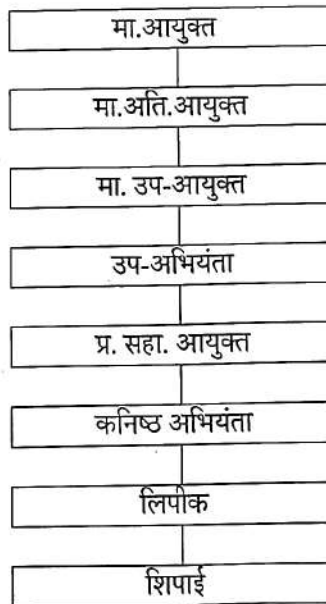 मा.आयुक्त
मा.अति.आयुक्त
मा. उप-आयुक्त
उप-अभियंता
प्र. सहा. आयुक्त
कनिष्ठ अभियंता
लिपीक
शिपाई